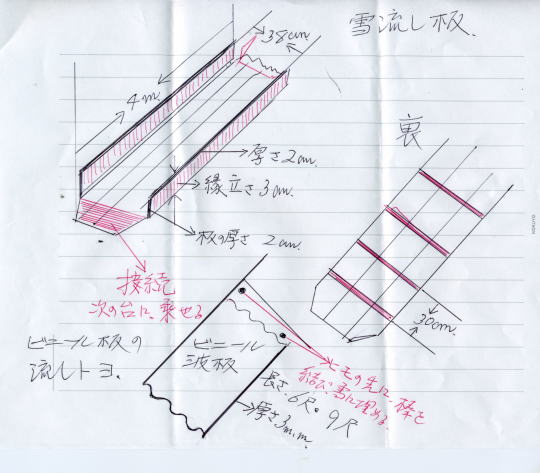 雪流し板.
38cm.
4m.
裏
厚さ2cm.
縁立さ3cm.
板の厚さ 2cm.
接続
次の台に乗せる
30cm.
ビニール板の
流しトヨ.
ビニール
波板
ヒモの先に、棒を
結び、雪に埋める.
長さ.6尺。9尺
厚さ3m.m.
KOKUYO